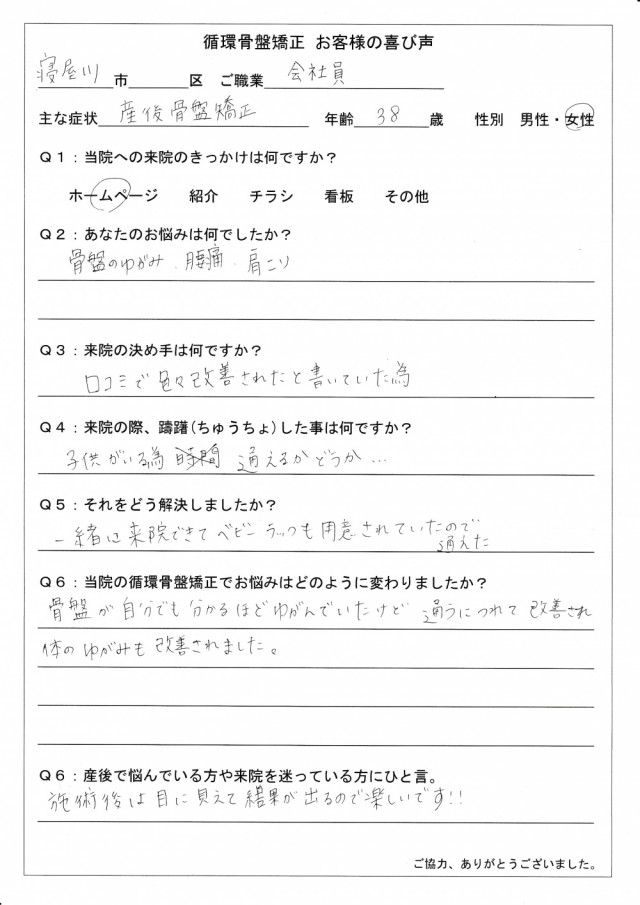 循環骨盤矯正 お客様の喜び声
寝屋川市 区 ご職業 会社員
主な症状 産後骨盤矯正 年齢 38 歳 性別 男性・女性
Q1：当院への来院のきっかけは何ですか？
ホームページ 紹介 チラシ 看板 その他
Q2：あなたのお悩みは何でしたか？
骨盤のゆがみ、腰痛、肩こり
Q3：来院の決め手は何ですか？
口コミで色々改善されたと書いていた為
Q4：来院の際、躊躇(ちゅうちょ)した事は何ですか？
子供がいる為 時間 通えるかどうか…
Q5：それをどう解決しましたか？
一緒に来院できてベビーラックも用意されていたので
通えた
Q6：当院の循環骨盤矯正でお悩みはどのように変わりましたか？
骨盤が自分でも分かるほどゆがんでいたけど 通うにつれて改善され
体のゆがみも改善されました。
Q6：産後で悩んでいる方や来院を迷っている方にひと言。
施術後は目に見えて結果が出るので楽しいです!!
ご協力、ありがとうございました。